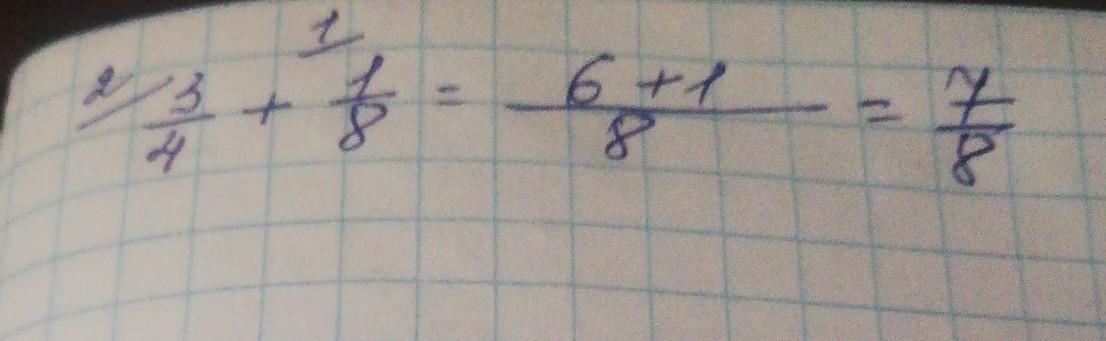 2/ 3/4 + 1/ 1/8 = 6+1/8 = 7/8